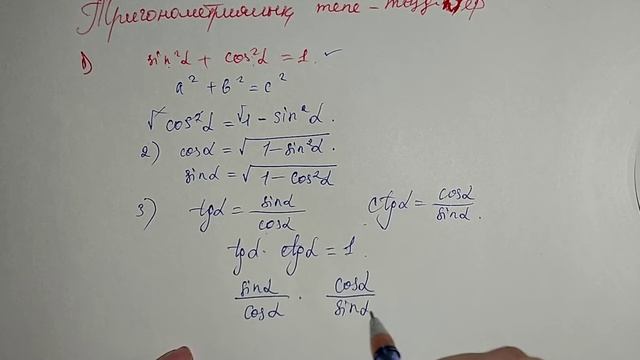 Тригонометриялық тепе-теңдіктер
1) sin²α + cos²α = 1. ✓
a² + b² = c²
√cos²α = √1 - sin²α.
2) cosα = √1-sin²α.
sinα = √1-cos²α
3) tgα = sinα/cosα ctgα = cosα/sinα.
tgα · ctgα = 1.
sinα/cosα · cosα/sinα